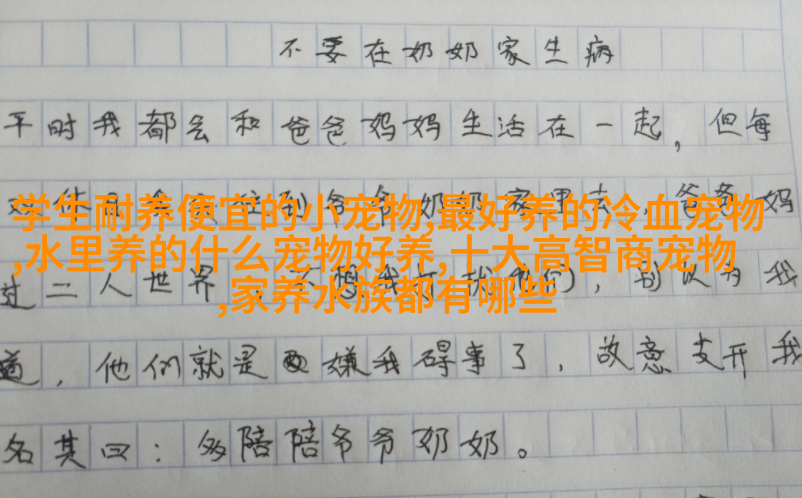 不要在奶奶家生病
平时我都会和爸爸妈妈生活在一起，但每
学生耐养便宜的小宠物,最好养的冷血宠物
到爷爷奶奶家里去，爸爸妈
,水里养的什么宠物好养,十大高智商宠物
过二人世界，别以为我
,家养水族都有哪些
道，他们就是嫌我碍事了，故意支开我
名其曰：多陪陪爷爷奶奶。